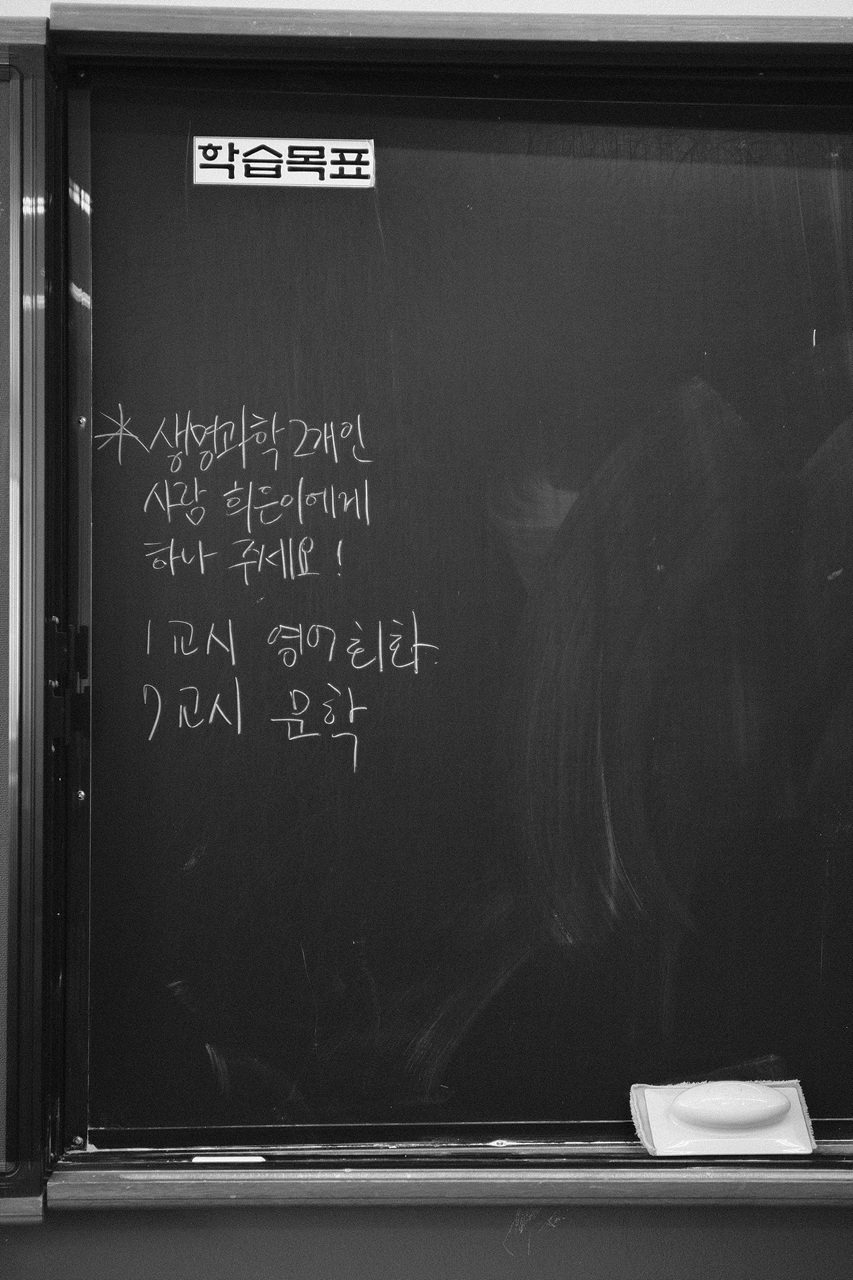 학습목표
* 생명과학 2개인
사람 희든이에게
하나 주세요!
1교시 영어회화
7교시 문학